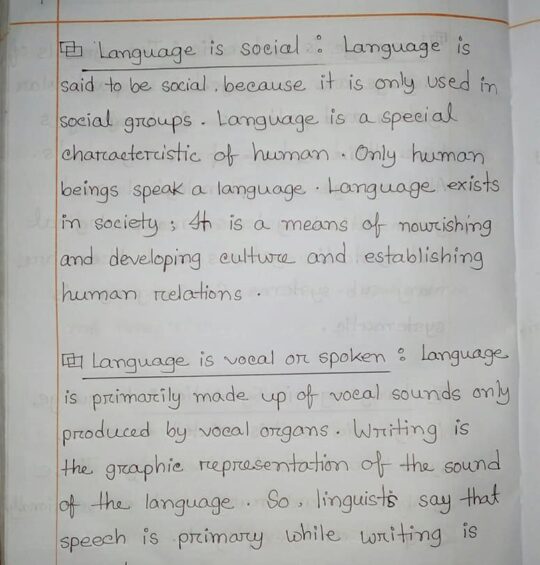 Language is social : Language is
said to be social. because it is only used in
social groups. Language is a special
characteristic of human. Only human
beings speak a language. Language exists
in society; It is a means of nourishing
and developing culture and establishing
human relations.
Language is vocal or spoken : Language
is primarily made up of vocal sounds only
produced by vocal organs. Writing is
the graphic representation of the sound
of the language. So, linguists say that
speech is primary while writing is